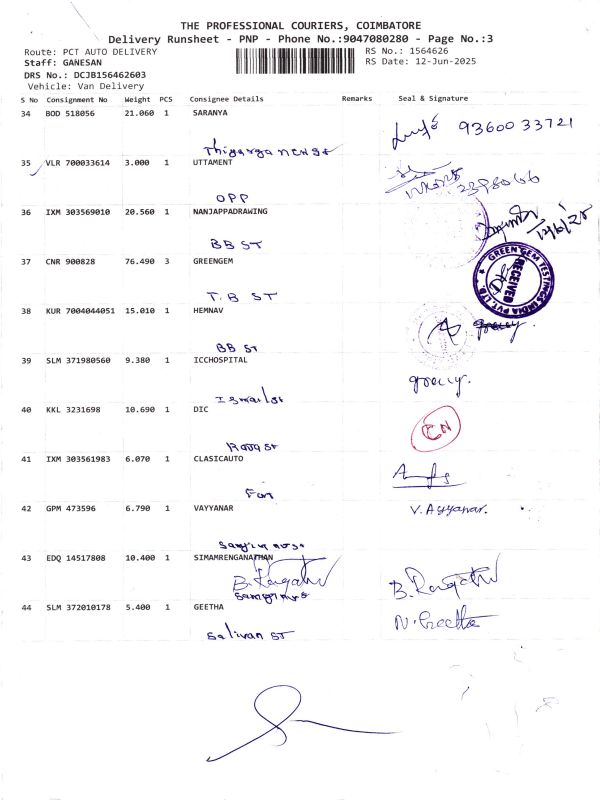 THE PROFESSIONAL COURIERS, COIMBATORE
Delivery Runsheet - PNP - Phone No.:9047080280 - Page No.:3
Route: PCT AUTO DELIVERY
RS No.: 1564626
Staff: GANESAN
RS Date: 12-Jun-2025
DRS No.: DCJB156462603
Vehicle: Van Delivery
S No Consignment No Weight PCS Consignee Details Remarks Seal & Signature
34 BOD 518056 21.060 1 SARANYA 9360033721
35 VLR 700033614 3.000 1 UTTAMENT
OPP
36 IXM 303569010 20.560 1 NANJAPPADRAWING 12/6/25
BB ST
37 CNR 900828 76.490 3 GREENGEM GREEN GEM TESTINGS INDIA PVT. LTD. RECEIVED
T.B ST
38 KUR 7004044051 15.010 1 HEMNAV
BB ST
39 SLM 371980560 9.380 1 ICCHOSPITAL
40 KKL 3231698 10.690 1 DIC
41 IXM 303561983 6.070 1 CLASICAUTO
42 GPM 473596 6.790 1 VAYYANAR V. Ayyanar.
43 EDQ 14517808 10.400 1 SIMAMRENGANATHAN
44 SLM 372010178 5.400 1 GEETHA N. Geetha
Salivan ST